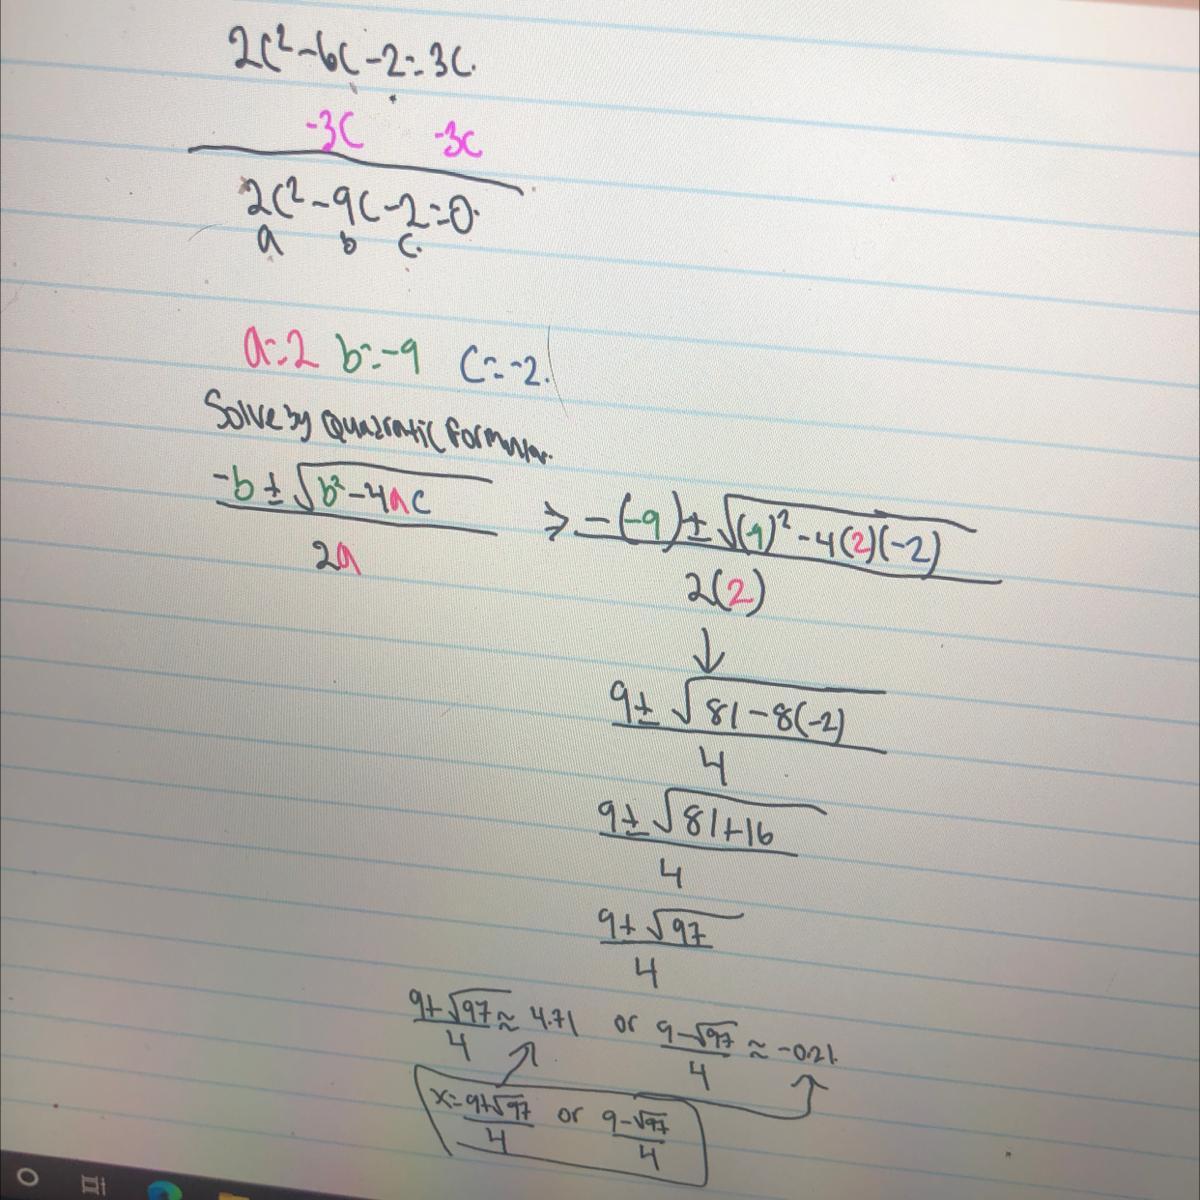 2c²-6c-2=3c.
-3c -3c
2c²-9c-2=0.
a b c.
a=2 b=-9 c=-2.
Solve by Quadratic formula.
-b±√b²-4ac / 2a ⇒ -(-9)±√(-9)²-4(2)(-2) / 2(2)
↓
9±√81-8(-2) / 4
9±√81+16 / 4
9±√97 / 4
9+√97 / 4 ≈ 4.71 or 9-√97 / 4 ≈ -0.21.
x=9+√97 / 4 or 9-√97 / 4